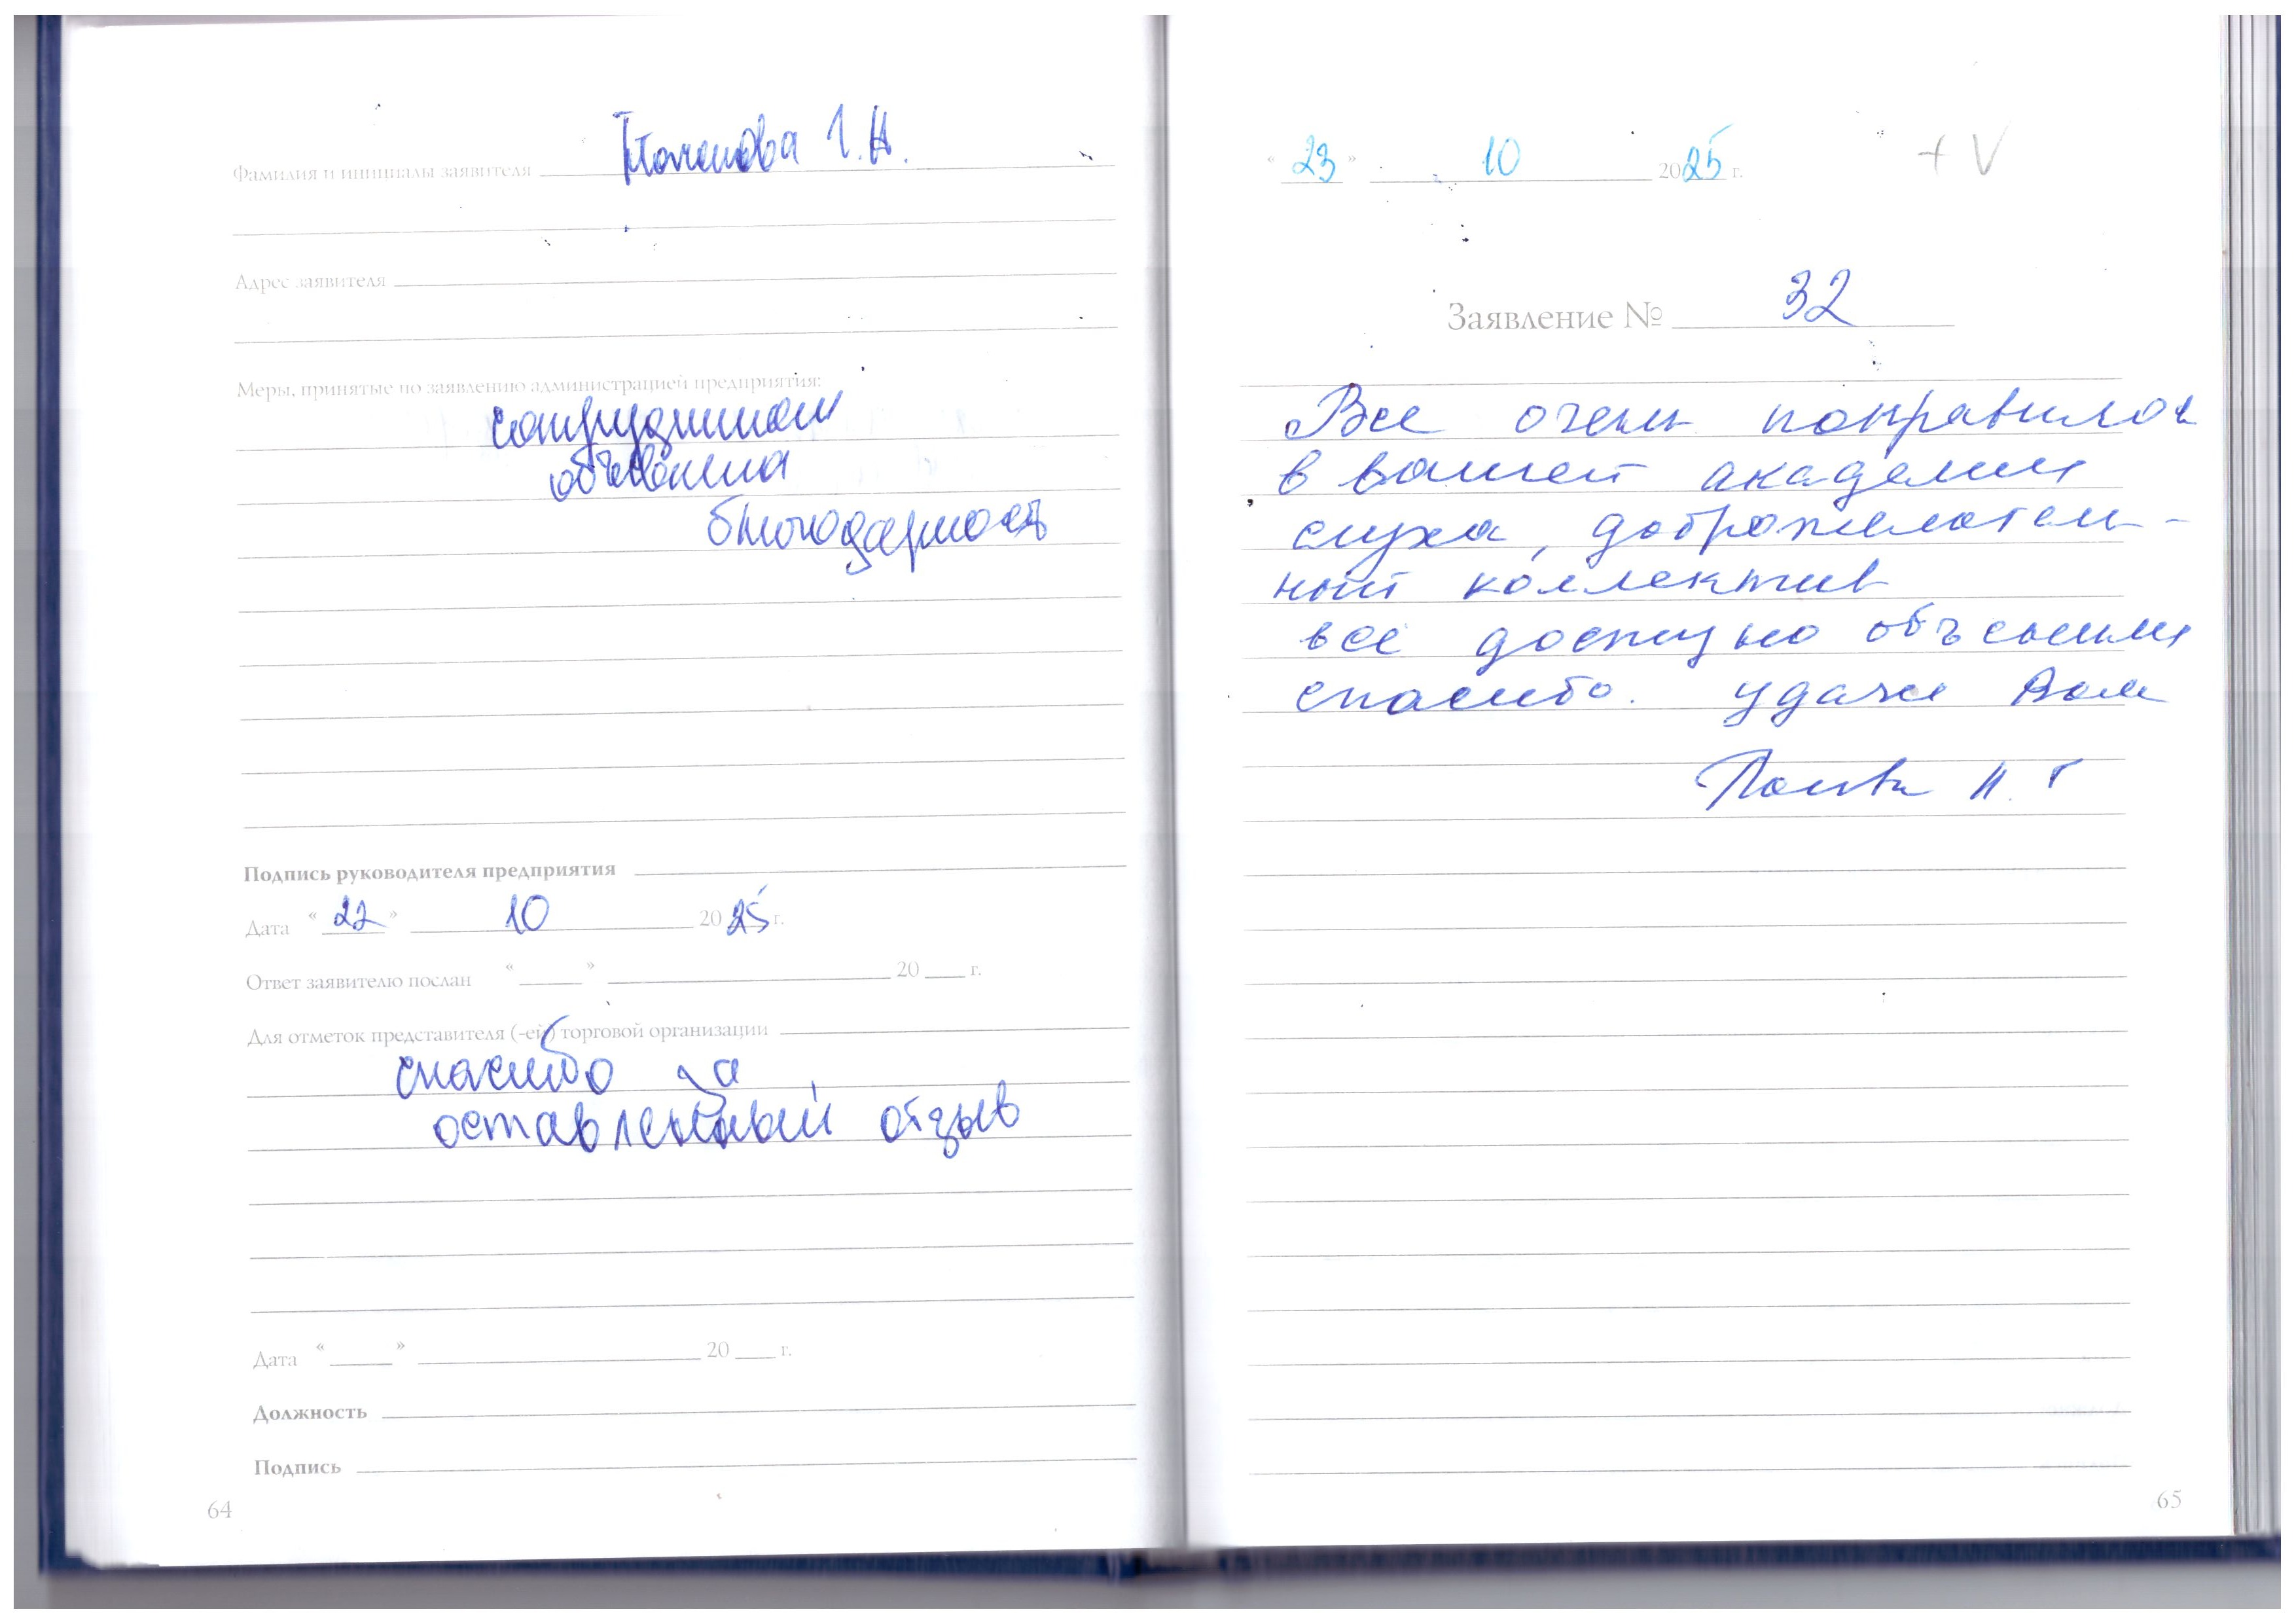 Фамилия и инициалы заявителя Г.Н.
Адрес заявителя
Меры, принятые по заявлению администрацией предприятия:
сотрудникам
объявлена
благодарность
Подпись руководителя предприятия
Дата « 22 » 10 20 25 г.
Ответ заявителю послан « » 20 г.
Для отметок представителя (-ей) торговой организации
спасибо за
оставленный отзыв
Дата « » 20 г.
Должность
Подпись
64
« 23 » 10 2025 г. + V
Заявление № 32
Все очень понравилось
в вашей академии
слуха, доброжелатель-
ный коллектив
все доступно объяснили
спасибо. удачи Вам
Н. Г
65